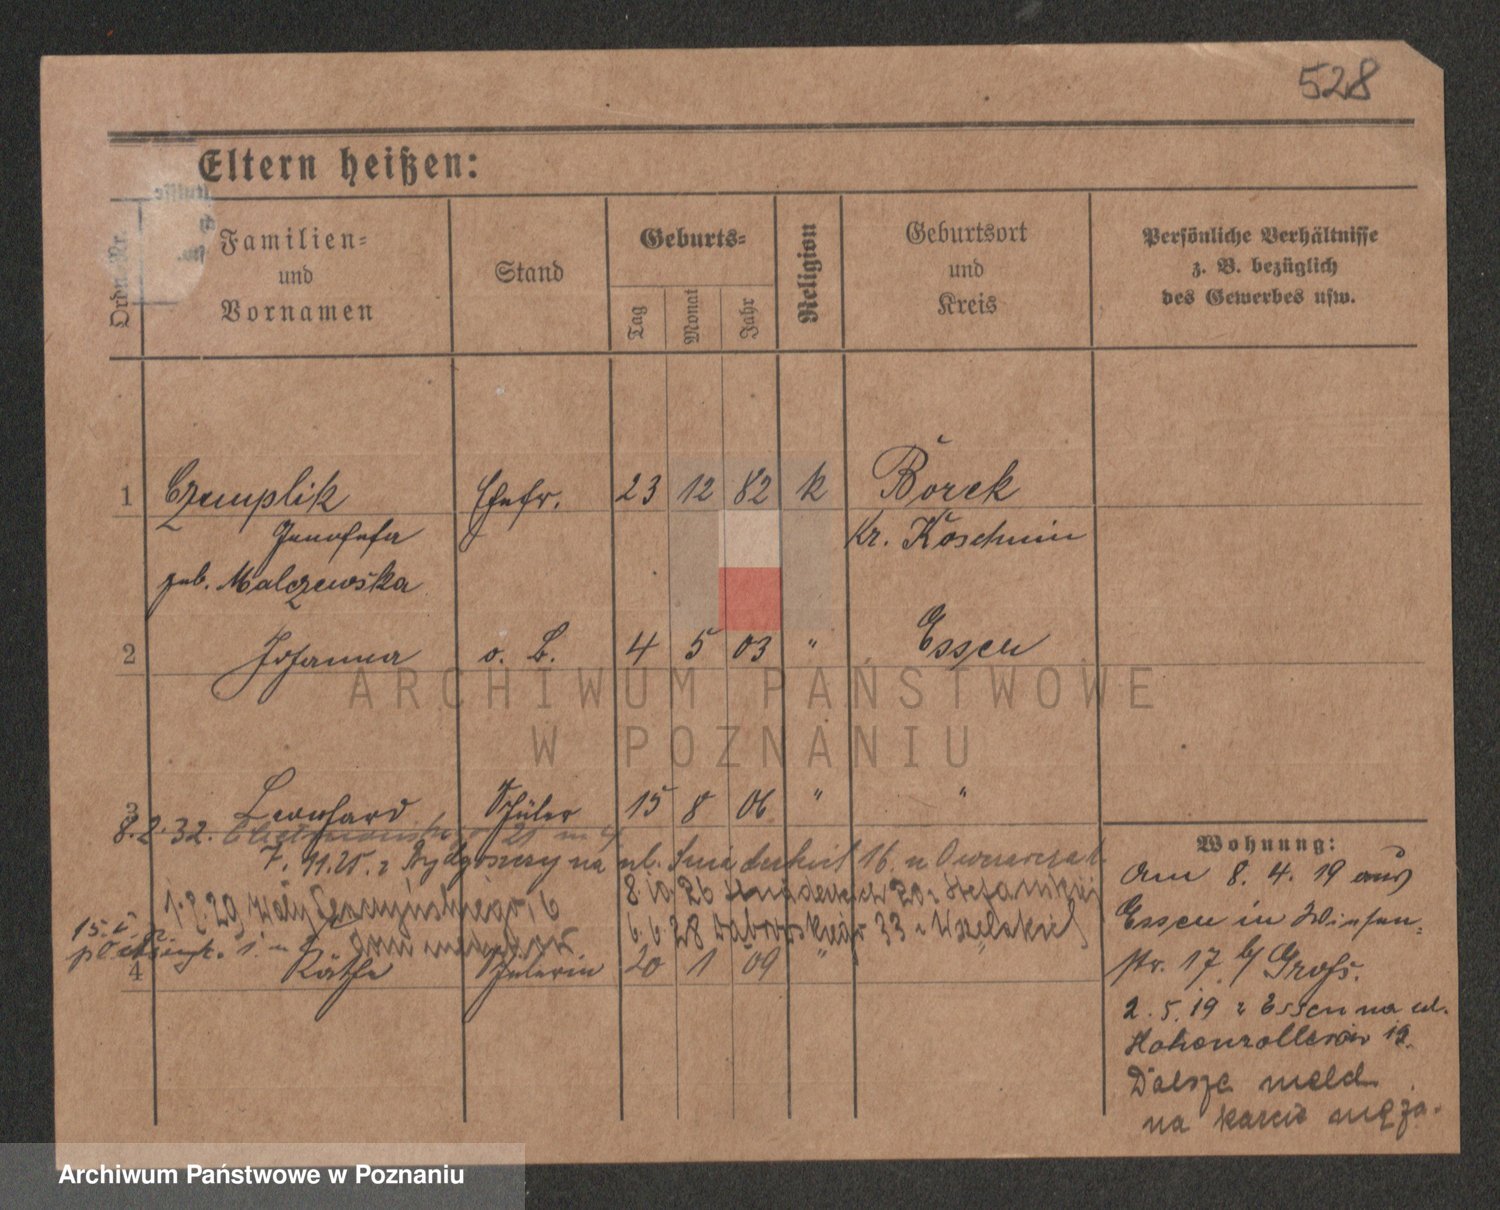 528
Eltern heißen:
Ordn. Nr.
Familien-
und
Vornamen
Stand
Geburts-
Tag
Monat
Jahr
Religion
Geburtsort
und
Kreis
Persönliche Verhältnisse
z. B. bezüglich
des Gewerbes usw.
1 Czemplik Ehefr. 23 12 82 k Borek
Genofefa Kr. Koschmin
geb. Malczewska
2 Johanna o. B. 4 5 03 " Essen
ARCHIWUM PAŃSTWOWE
W POZNANIU
3 Leonhard Schüler 15 8 06 " "
8.2.32.
7. 11.25. z Bydgoszczy na ul. Śniadeckich 16. u Owczarczak
8 10 26 Śniadeckich 20 u Stefańskiej
1.2.29 Wały Leszczyńskiego 6
6.6.28 Dąbrowskiego 33 u Wszelakich
4 Käthe Schülerin 20 1 09 "
Wohnung:
Am 8. 4. 19 aus
Essen in Wiesen-
str. 17 b/ Gross.
2.5.19 z Essen na ul.
Hohenzollernów 19.
Dalsze meld.
na karcie męża.
Archiwum Państwowe w Poznaniu